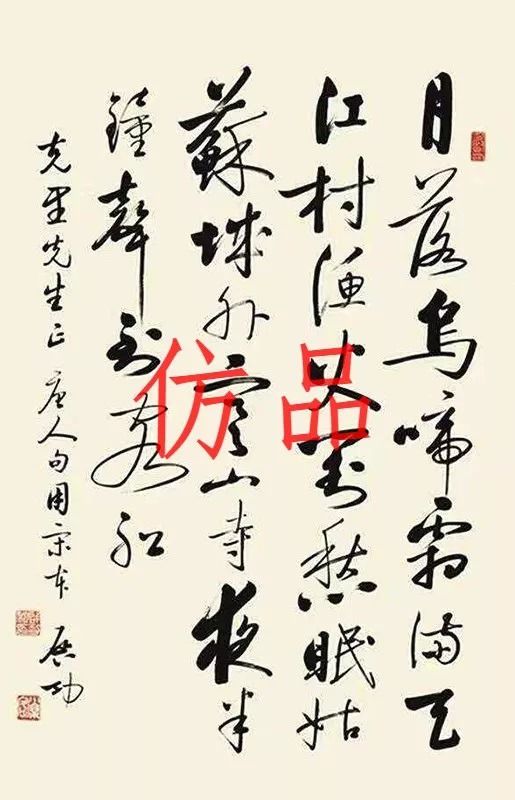 月落烏啼霜滿天
江村漁火對愁眠姑
蘇城外寒山寺夜半
鐘聲到客船
克先生正 唐人句用宋本 启功
仿品